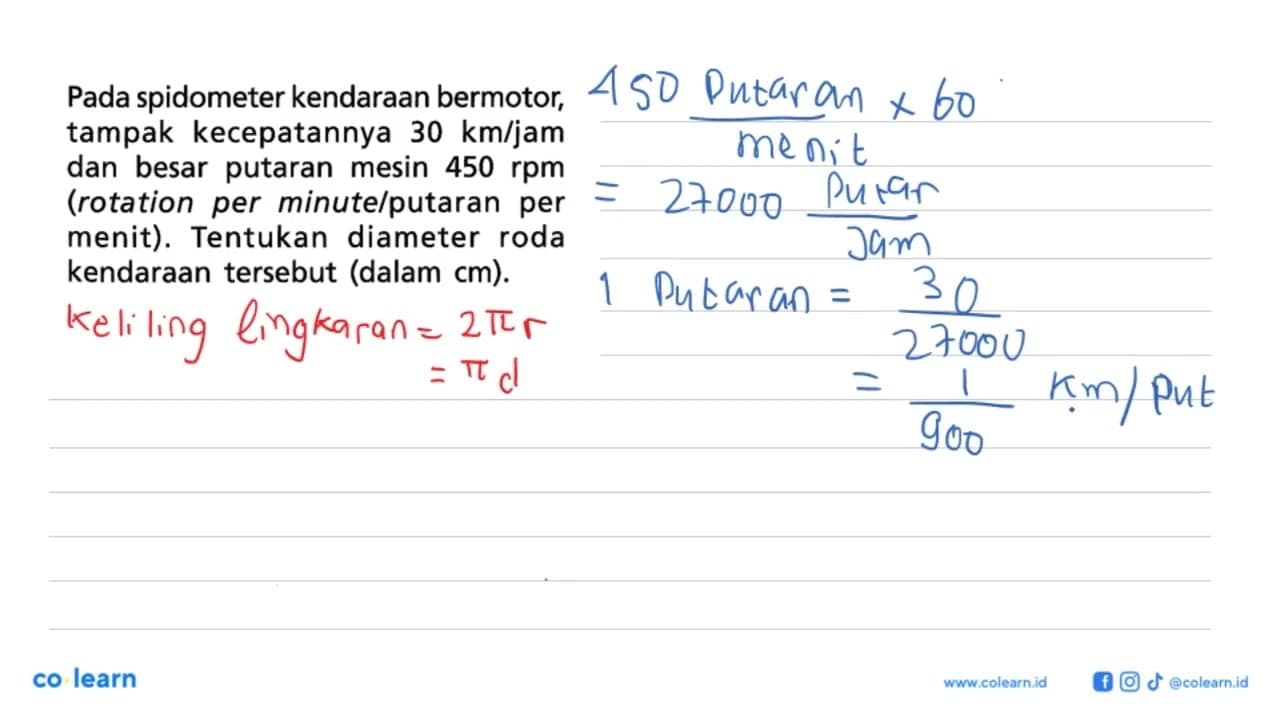 Pada spidometer kendaraan bermotor,
tampak kecepatannya 30 km/jam
dan besar putaran mesin 450 rpm
(rotation per minute/putaran per
menit). Tentukan diameter roda
kendaraan tersebut (dalam cm).
keliling lingkaran = 2πr
= πd
450 Putaran × 60
menit
= 27000 Putar
Jam
1 Putaran = 30
27000
= 1 Km/Put
900
co learn
www.colearn.id
@colearn.id